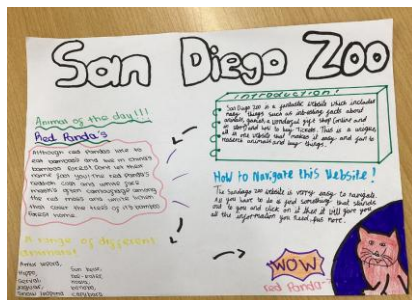 San Diego Zoo
Animal of the day!!!
Red Panda's
Although red pandas like to
eat bamboo and live in china's
bamboo forest. Dont let their
name fool you! The red panda's
reddish coat and white face
masks great camouflage among
the red moss and white lichen
that cover the trees of its bamboo
forest home.
A range of different
Amur leopard,
Hippo,
Serval,
Jaguar,
Snow leopard
Sun bear,
Bee-eater,
Koala,
Bonobo,
Capybara
introduction!
San Diego Zoo is a fantastic website which includes
many things such as interesting facts about
animals, games, a wonderful gift shop (online and
in store) and how to buy tickets. This is a unique
all in one website that makes it easy and fun to
research animals and buy things.
How to Navigate this Website!
The Sandiego zoo website is very easy to navigate.
All you have to do is find something that stands
out to you and click on it then it will give you
all the information you need
WOW
red Panda